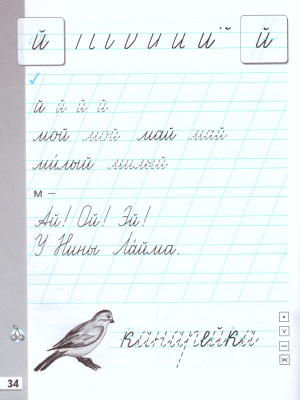 й й й
й й й й
мой мой май май
ми́лый милый
м –
Ай! Ой! Эй!
У Нины Ла́йма.
канарейка
34